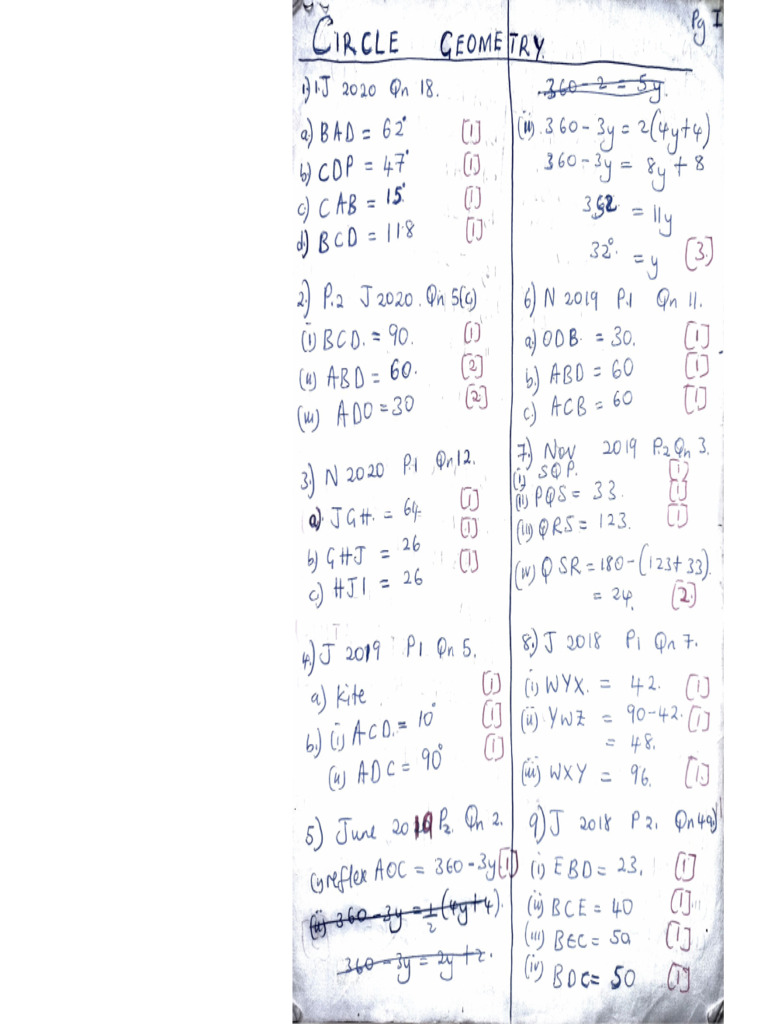 CIRCLE GEOMETRY.
Pg I
1) 1.J 2020 Qn 18.
a) BAD = 62° [1]
b) CDP = 47° [1]
c) CAB = 15° [1]
d) BCD = 118 [1]
2) P.2 J 2020. Qn 5(c)
(i) BCD. = 90. [1]
(ii) ABD = 60. [2]
(iii) ADO = 30 [2]
3) N 2020 P.1 Qn 12.
a) JGH. = 64 [1]
b) GHJ = 26 [1]
c) HJI = 26 [1]
4) J 2019 P1 Qn 5.
a) kite [1]
b.) (i) ACD. = 10° [1]
(ii) ADC = 90° [1]
5) June 2019 P2. Qn 2.
(i) reflex AOC = 360-3y [1]
(ii) 360-3y = 1/2 (4y+4).
360-3y = 2y+2.
360-2 = 5y.
(ii) 360-3y = 2(4y+4)
360-3y = 8y+8
352 = 11y
32° = y [3.]
6) N 2019 P.1 Qn 11.
a) ODB. = 30. [1]
b.) ABD = 60 [1]
c) ACB = 60 [1]
7.) Nov 2019 P.2 Qn 3.
(i) SQP. [1]
(ii) PQS = 33. [1]
(iii) QRS = 123. [1]
(iv) QSR = 180-(123+33).
= 24. [2.]
8.) J 2018 P1 Qn 7.
(i) WYX. = 42. [1]
(ii) YWZ = 90-42. [1]
= 48.
(iii) WXY = 96. [1.]
9) J 2018 P2. Qn 4a)
(i) EBD = 23. [1]
(ii) BCE = 40 [1]
(iii) BEC = 50 [1]
(iv) BDC = 50 [1]